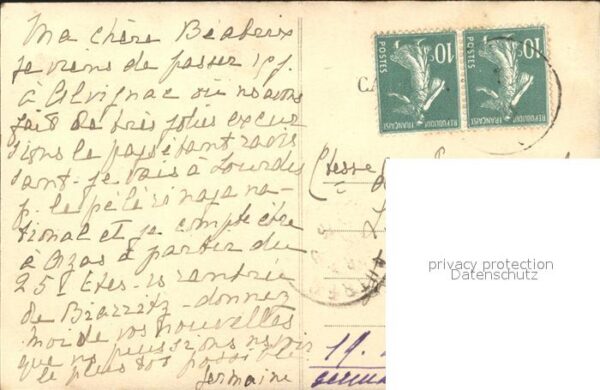 Ma chère Béatrix
je viens de passer 15 j.
à Alvignac où ns avons
fait de très jolies excur
sions le pays étant ravis
sant - je vais à Lourdes
p. le pélérinage na-
tional et je compte être
à Azas à partir du
25 ! Etes-vs rentrée
de Biarritz - donnez
moi de vos nouvelles
que ns puissions ns voir
le plus tôt possible
Germaine
10c POSTES RÉPUBLIQUE FRANÇAISE
10c POSTES RÉPUBLIQUE FRANÇAISE
CA
Ctesse
privacy protection
Datenschutz